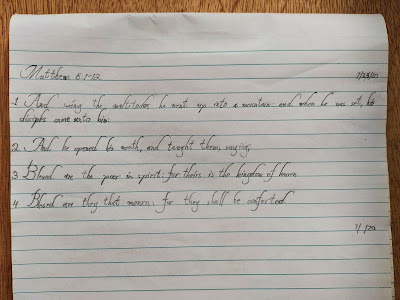 Matthew 5:1-12 7/23/20
1 And seeing the multitudes, he went up into a mountain: and when he was set, his
disciples came unto him:
2 And he opened his mouth, and taught them, saying,
3 Blessed are the poor in spirit: for theirs is the kingdom of heaven
4 Blessed are they that mourn: for they shall be comforted